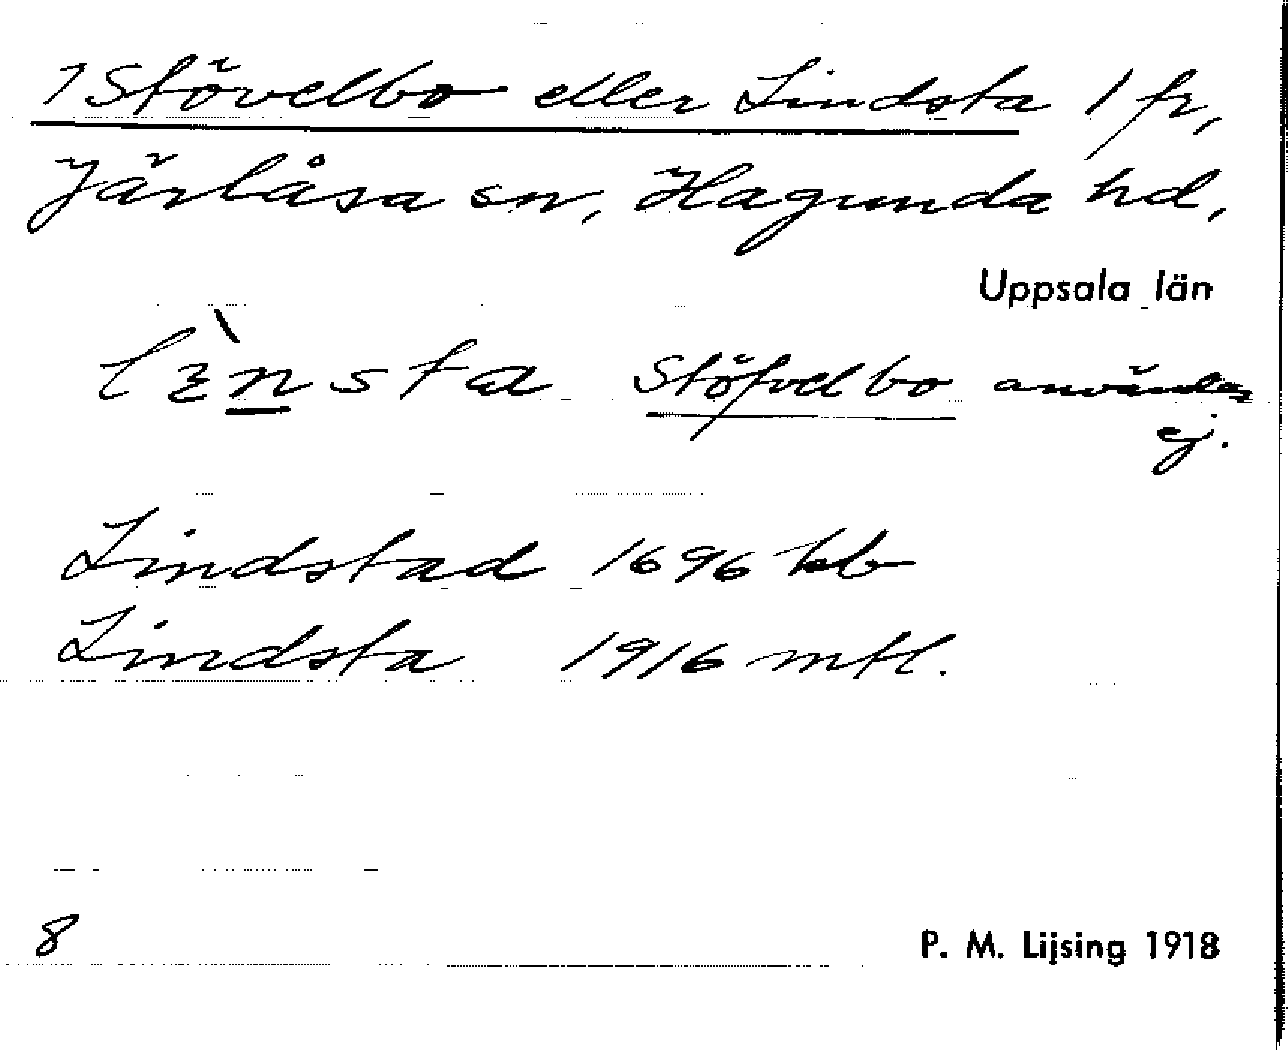 1 Stövelbo eller Lindsta 1 fr,
Järlåsa sn, Hagunda hd,
Uppsala län
lìnsta Stöfvelbo användes
ej.
Lindstad 1696 kb
Lindsta 1916 mtl.
8
P. M. Lijsing 1918